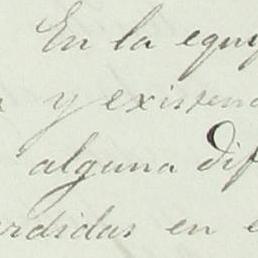 En la equi
y existen
alguna dif
rdidas en e